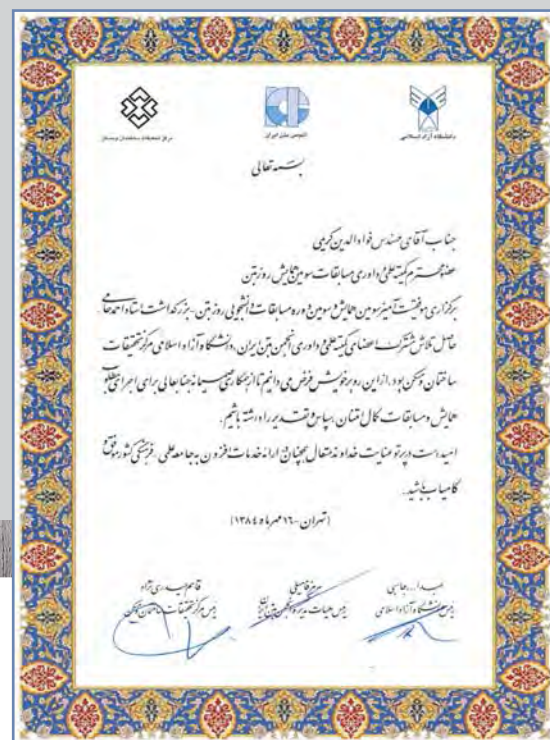 مرکز تحقیقات ساختمان و مسکن
انجمن بتن ایران
دانشگاه آزاد اسلامی
بسمه تعالی
جناب آقای مهندس فواد الدین کریمی
عضو محترم کمیته علمی و داوری مسابقات سومین همایش روز بتن
برگزاری موفقیت آمیز سومین همایش و سومین دوره مسابقات دانشجویی روز بتن - بزرگداشت استاد احمد حامی
حاصل تلاش مشترک اعضای کمیته علمی و داوری انجمن بتن ایران، دانشگاه آزاد اسلامی مرکز تحقیقات
ساختمان و مسکن بود. از این رو بر خویش فرض می دانیم تا از همکاری صمیمانه جنابعالی برای اجرای مطلوب
همایش و مسابقات کمال امتنان، سپاس و تقدیر را داشته باشیم.
امید است در پرتو عنایت خداوند متعال همچنان در ارائه خدمات افزون به جامعه علمی - فرهنگی کشور موفق و
کامیاب باشید.
(تهران - ١٦ مهر ماه ١٣٨٤)
عبدا... جاسبی
رئیس دانشگاه آزاد اسلامی
رئیس هیات مدیره انجمن بتن ایران
قاسم حیدری نژاد
رئیس مرکز تحقیقات ساختمان و مسکن